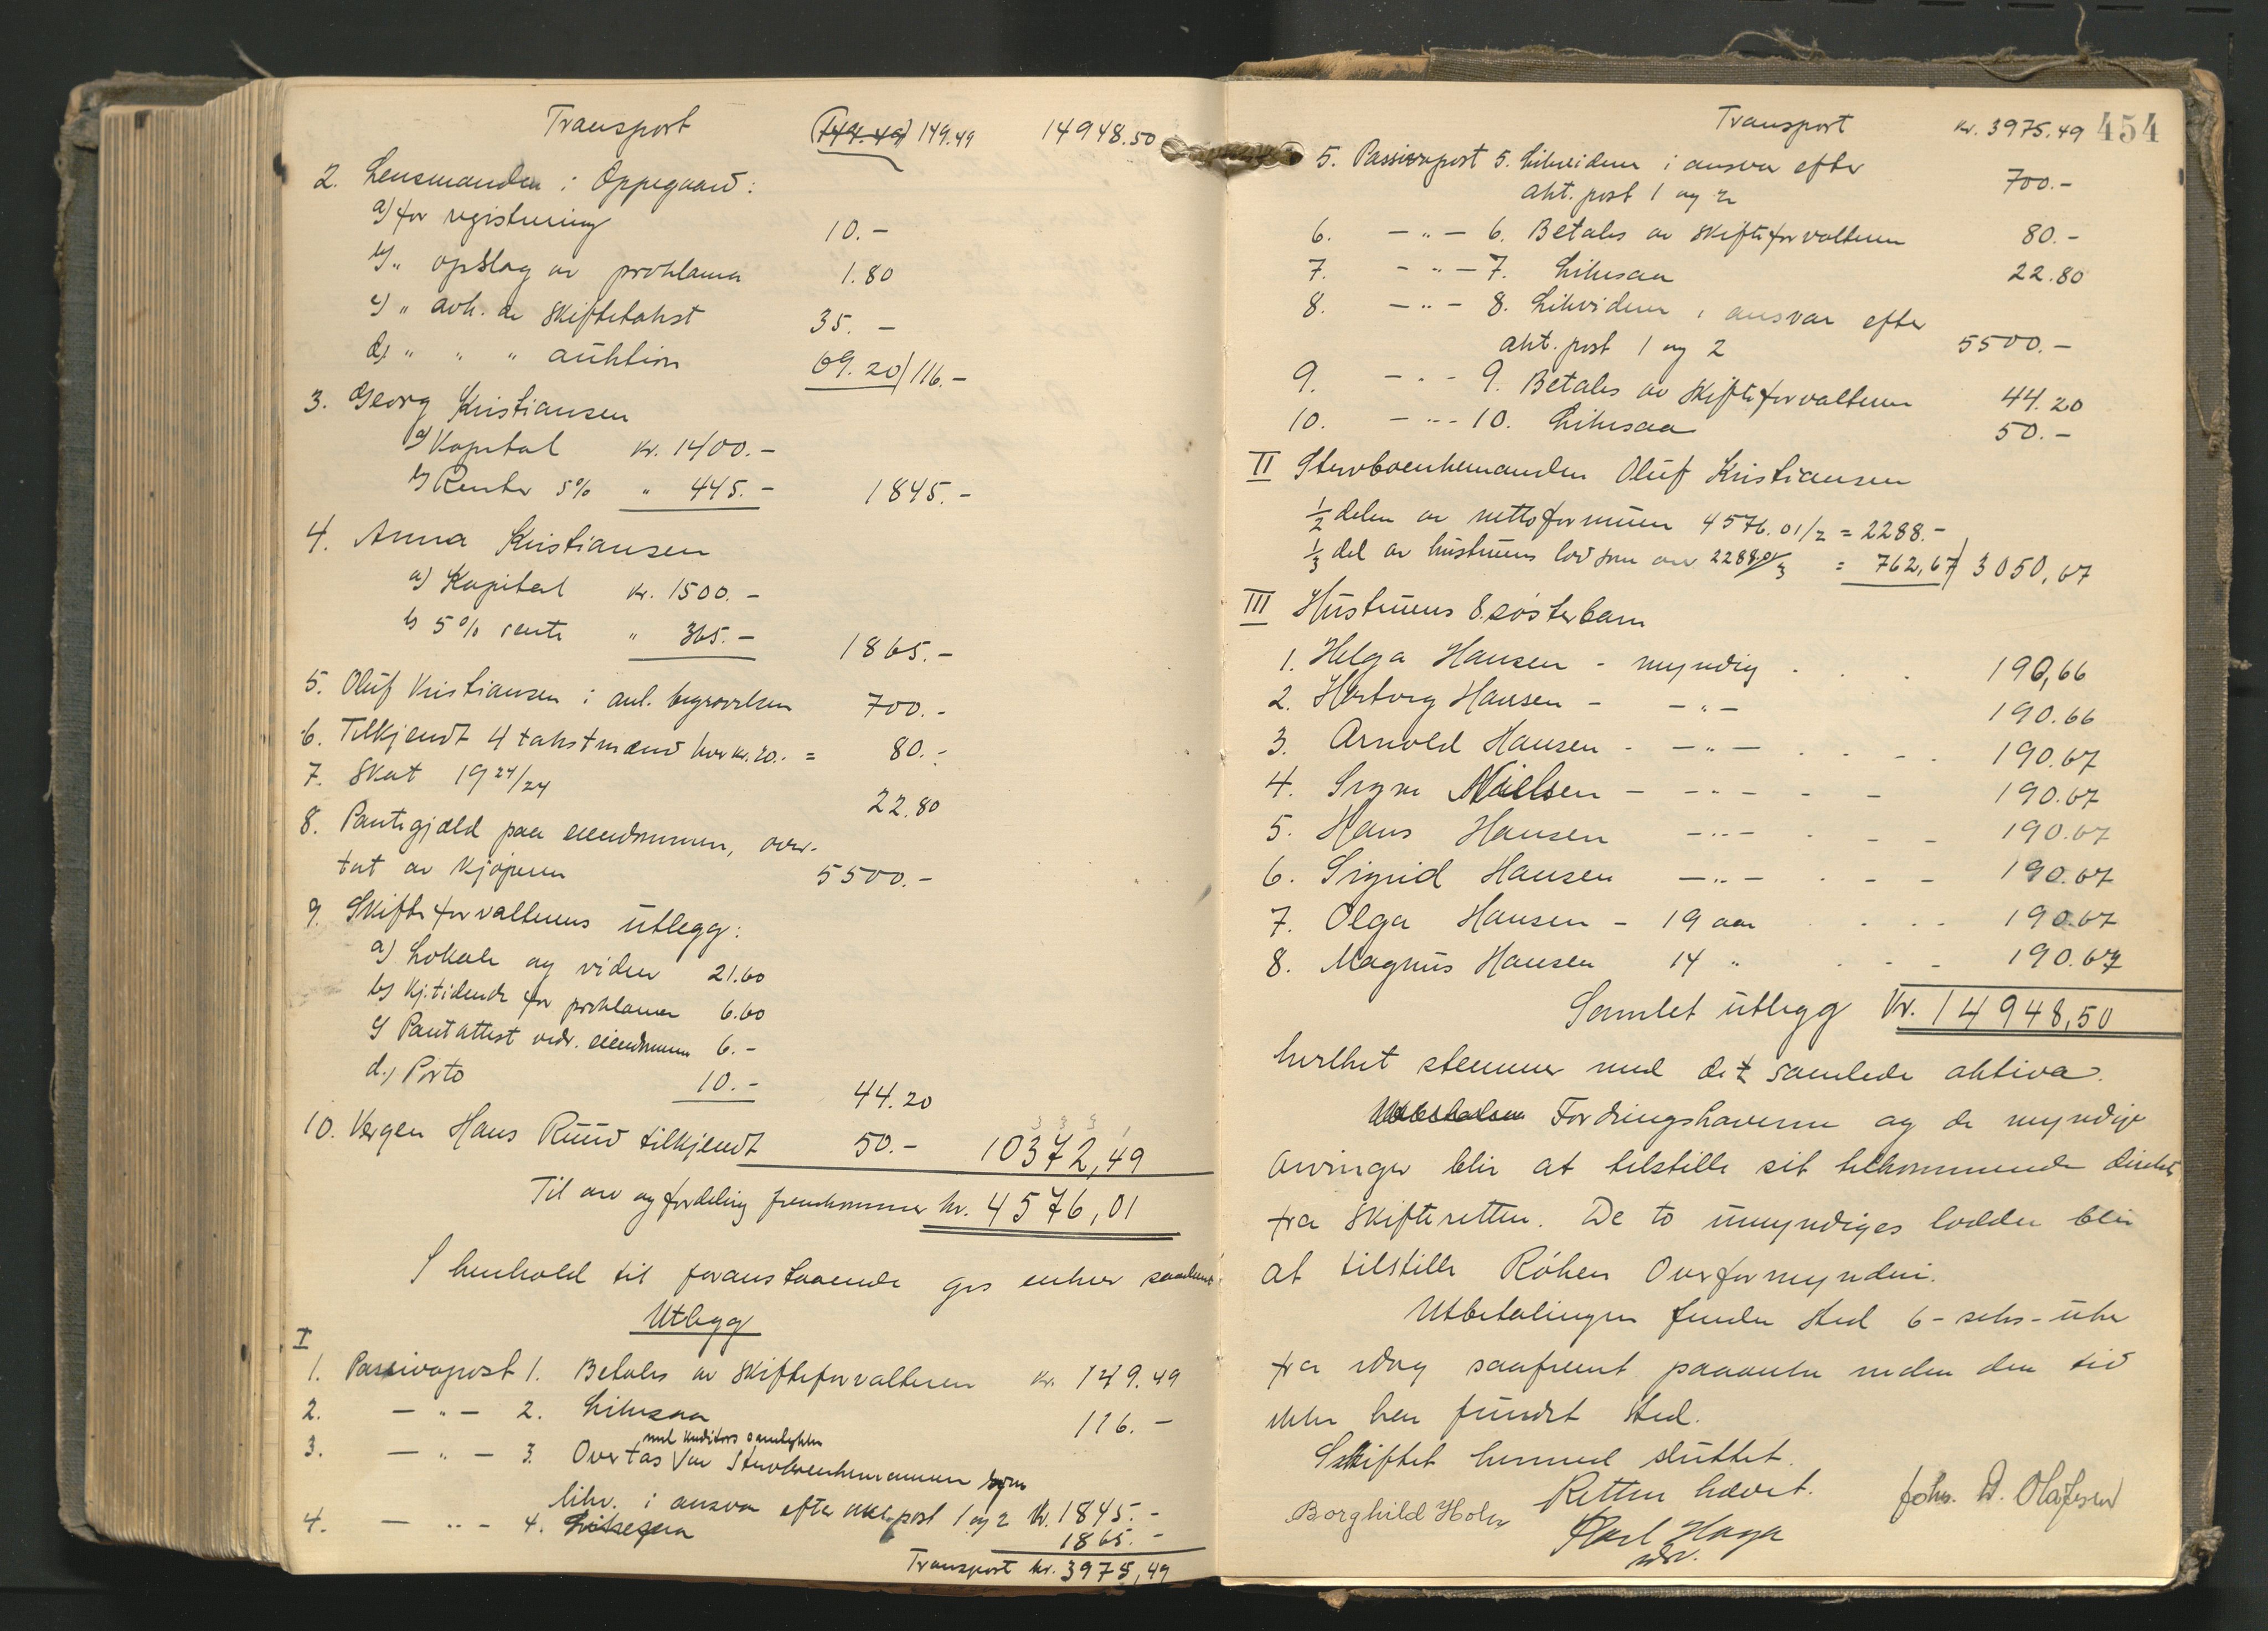 Transport (144.49) 149.49 14948.50
2. Lensmanden i Oppegaard:
a) for registrering 10.-
b) " opslag av proklama 1.80
c) " avh. av skiftetakst 35.-
d) " " " auktion 69.20 / 116.-
3. Georg Kristiansen
a) Kapital kr. 1400.-
b) Rente 5% " 445.- 1845.-
4. Anna Kristiansen
a) Kapital kr. 1500.-
b) 5% rente " 365.- 1865.-
5. Oluf Kristiansen i anl. begravelsen 700.-
6. Tilkjendt 4 takstmænd hver kr. 20. = 80.-
7. Skat 19 24/24 22.80
8. Pantegjæld paa eiendommen, over-
tat av kjøperen 5500.-
9. Skifteforvalterens utlegg:
a) Lokale og vidner 21.60
b) Kj.tidende for proklama 6.60
c) Pantattest vedr. eiendommen 6.-
d.) Porto 10.- 44.20
10. Vergen Hans Ruud tilkjendt 50.- 10372,49
Til arv og fordeling fremkommer kr. 4576,01
I henhold til foranstaaende gis enhver saadant
Utlegg
I
1. Passivapost 1. Betales av skifteforvalteren kr. 149.49
2. - " - 2. Likesaa 116.-
med kreditors samtykke
3. - " - 3. Overtas av Stervboenkemannen som
likv. i ansvar efter akt. post 1 og 2 kr. 1845.-
4. - " - 4. Likesaa 1865.-
Transport kr. 3975,49
Transport kr. 3975.49 454
5. Passivapost 5. Likvideres i ansvar efter
akt. post 1 og 2 700.-
6. - " - 6. Betales av skifteforvalteren 80.-
7. - " - 7. Likesaa 22.80
8. - " - 8. Likvideres i ansvar efter
akt. post 1 og 2 5500.-
9. - " - 9. Betales av skifteforvalteren 44.20
10. - " - 10. Likesaa 50.-
II Stervboenkemanden Oluf Kristiansen
1/2 delen av nettoformuen 4576.01/2 = 2288.-
1/3 del av hustruens lod som arv 2288.01/3 = 762,67 / 3050,67
III Hustruens 8 søsterbarn
1. Helga Hansen - myndig 190,66
2. Hertvig Hansen - - " - 190.66
3. Arnold Hansen - - " - 190.67
4. Signe Nielsen - - " - 190.67
5. Hans Hansen - " - 190.67
6. Sigrid Hansen - " - 190.67
7. Olga Hansen - 19 aar 190.67
8. Magnus Hansen 14 " 190.67
Samlet utlegg Kr. 14948,50
hvilket stemmer med det samlede aktiva.
Fordringshaverne og de myndige
arvinger blir at tilstille sit tilkommende direkte
fra skifteretten. De to umyndiges lodder blir
at tilstille Røken Overformynderi.
Utbetalingen finder sted 6 - seks - uker
fra idag saafremt paaanke inden den tid
ikke har fundet sted.
Skiftet hermed sluttet.
Retten hævet.
Borghild Holm Karl Haga Johs. D. Olafsen